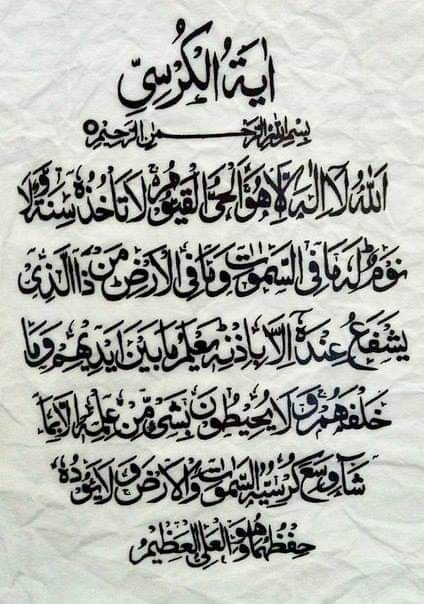 اٰيَةُ الْكُرْسِيِّ
بِسْمِ اللهِ الرَّحْمٰنِ الرَّحِيْمِ
اَللهُ لَا اِلٰهَ اِلَّا هُوَ اَلْحَيُّ الْقَيُّوْمُ لَا تَأْخُذُهٗ سِنَةٌ وَّلَا
نَوْمٌ ط لَهٗ مَا فِی السَّمٰوٰتِ وَمَا فِی الْاَرْضِ مَنْ ذَا الَّذِیْ
يَشْفَعُ عِنْدَهٗ اِلَّا بِاِذْنِهٖ يَعْلَمُ مَا بَيْنَ اَيْدِيْهِمْ وَمَا
خَلْفَهُمْ وَلَا يُحِيْطُوْنَ بِشَیْءٍ مِّنْ عِلْمِهٖ اِلَّا بِمَا
شَآءَ وَسِعَ كُرْسِيُّهُ السَّمٰوٰتِ وَالْاَرْضَ وَلَا يَئُوْدُهٗ
حِفْظُهُمَا وَهُوَ الْعَلِیُّ الْعَظِيْمُ